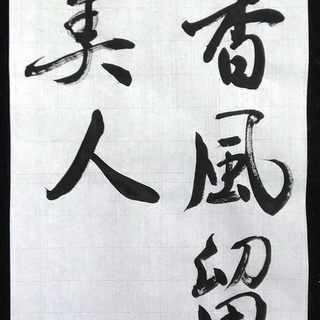 香風留
美人